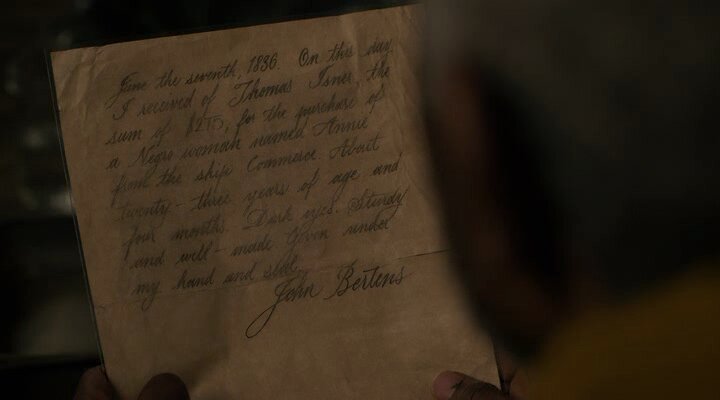 June the seventh, 1836. On this day
I received of Thomas Isner the
sum of $275, for the purchase of
a Negro woman named Annie
from the ship Commerce. About
twenty-three years of age and
four months. Dark eyes. Sturdy
and well-made. Given under
my hand and seal,
John Bertens